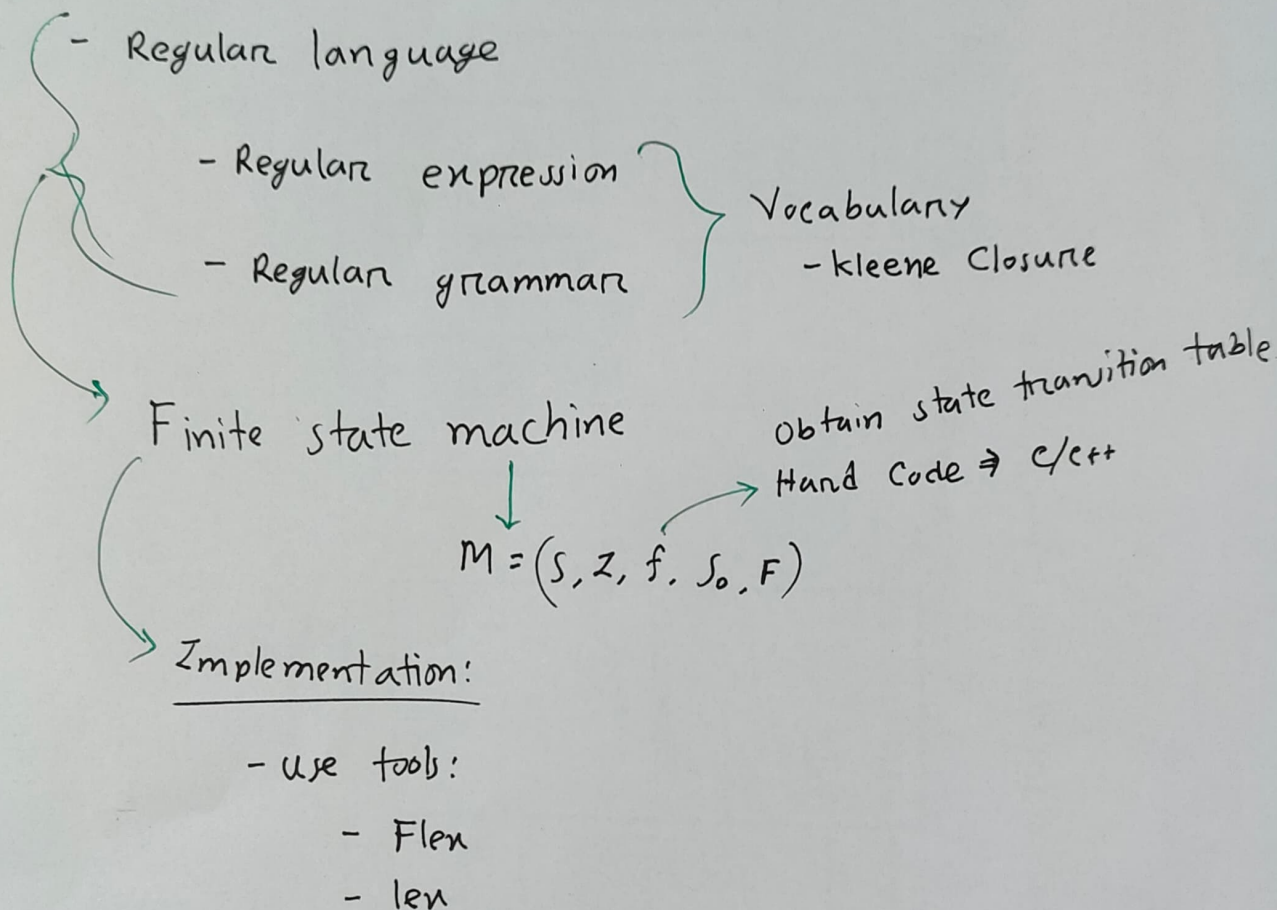 - Regular language
- Regular expression
- Regular grammar
Vocabulary
- Kleene Closure
Finite state machine
Obtain state transition table
Hand Code ⇒ C/C++
M = (S, Σ, f, S₀, F)
Implementation:
- Use tools:
- Flex
- lex